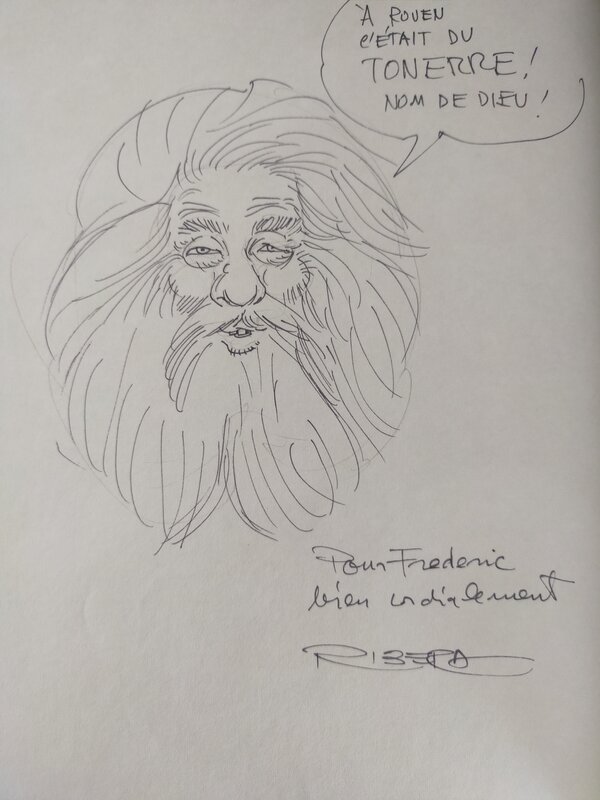 À ROUEN
C'ÉTAIT DU
TONERRE!
NOM DE DIEU!
Pour Frederic
bien cordialement
RIBERA